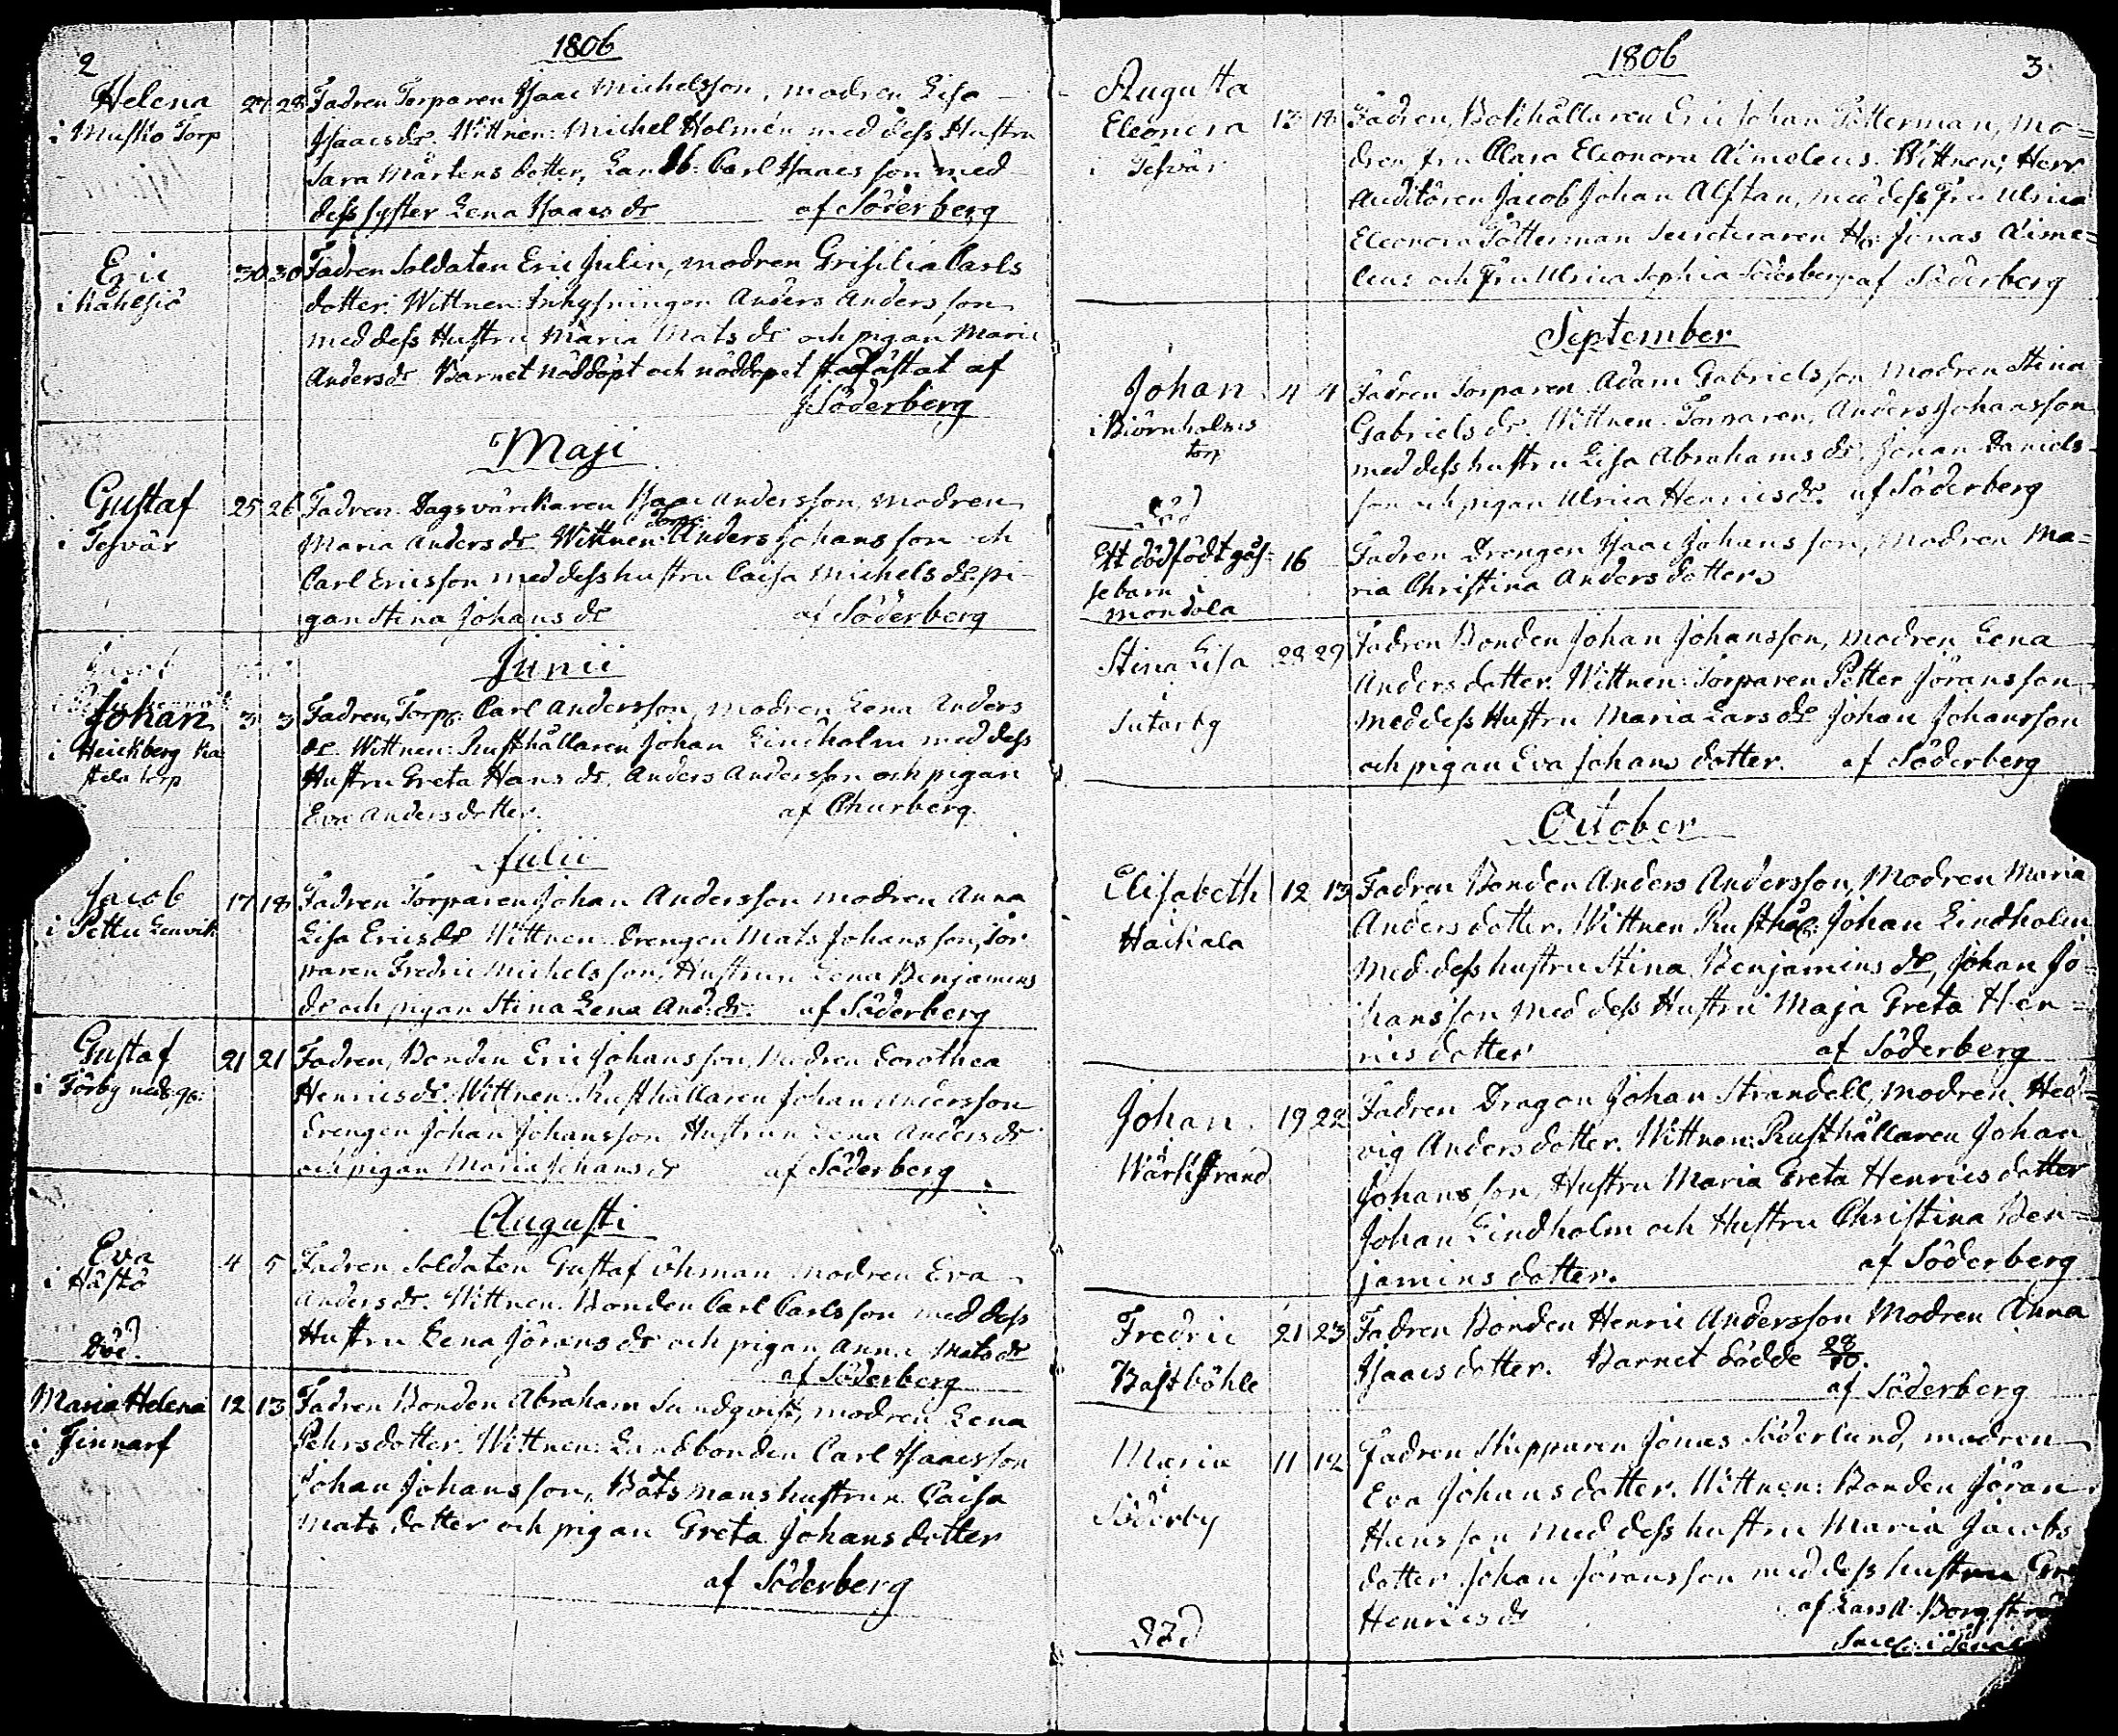 2
1806
Helena
i Musko Torp
27 28
Fadren Torparen Isaac Michelsson, modren Lisa
Isaacsdr. Wittnen: Michel Holmén med dess Hustru
Sara Mårtens dotter, Landb: Carl Isaacsson med
dess syster Lena Isaacsdr af Söderberg
Eric
30 30
Fadren Soldaten Eric Julin, modren Carls
dotter. Wittnen: Inhysningen Anders Andersson
med dess Hustru Maria Matsdr och pigan Maria
Andersdr. Barnet nöddöpt och nöddopet stadfästat af
J Söderberg
Maji
Gustaf
i Tesvär
25 26
Fadren Dagsvärckaren Isaac Andersson, modren
Maria Andersdr Wittnen: Torp: Anders Johansson och
Carl Ericsson med dess hustru Caisa Michelsdr. pi-
gan Stina Johansdr af Söderberg
Junii
Johan
i Heickberg Ka
stela torp
3 3
Fadren, Torp: Carl Andersson, modren Lena Anders
dr. Wittnen: Rusthållaren Johan Lindholm med dess
Hustru Greta Hansdr. Anders Andersson och pigan
Eva Andersdotter. af Churberg.
Julii
Jacob
i Pettu Lenvik
17 18
Fadren Torparen Johan Andersson modren Anna
Lisa Ericsdr Wittnen: Drengen Mats Johansson, Tor
paren Fredric Michelsson, Hustrun Lena Benjamins
dr och pigan Stina Lena And:dr. af Söderberg
Gustaf
i Förby nedg:
21 21
Fadren, Bonden Eric Johansson, Modren Dorothea
Henricsdr. Wittnen: Rusthållaren Johan Andersson
Drengen Johan Johansson Hustrun Lena Andersdr
och pigan Maria Johansdr af Söderberg
Augusti
Eva
i Håstö
Död.
4 5
Fadren Soldaten Gustaf Öhman modren Eva
Andersdr. Wittnen. Bonden Carl Carlsson med dess
Hustru Lena Jöransdr och pigan Anna Matsdr
af Söderberg
Maria Helena
i Finnarf
12 13
Fadren Bonden Abraham Sundqvist, modren Lena
Pehrsdotter. Wittnen: Landbonden Carl Isaacsson
Johan Johansson, Båtsmanshustrun Caisa
Mats dotter och pigan Greta Johansdotter
af Söderberg
1806
3
Augusta
Eleonora
i Tesvär
13 18
Fadren, Bokhållaren Eric Johan Pätterman, Mo=
dren fru Clara Eleonora Aimeleus. Wittnen; Herr
Auditören Jacob Johan Alftan, med dess Fru Ulrica
Eleonora Pätterman Secreteraren Hr Jonas Aime=
leus och Fru Ulrica Sophia Söderberg af Söderberg
September
Johan
i Biörnholms
torp
Död
4 4
Fadren Torparen Adam Gabrielsson modren Stina
Gabrielsdr. Wittnen. Torparen, Anders Johansson
med dess hustru Lisa Abrahamsdr. Johan Daniels-
son och pigan Ulrica Henricsdr. af Söderberg
Ett dödfödt gås=
sebarn
Mondola
16
Fadren Drengen Isaac Johansson, Modren Ma=
ria Christina Andersdotter
Stina Lisa
i
Sutarby
28 29
Fadren Bonden Johan Johansson, modren Lena
Andersdotter. Wittnen: Torparen Petter Jöransson
med dess Hustru Maria Larsdr Johan Johansson
och pigan Eva Johans dotter. af Söderberg
October
Elisabeth
i
Haikala
12 13
Fadren Bonden Anders Andersson, Modren Maria
Anders dotter. Wittnen Rusthål: Johan Lindholm
med dess hustru Stina Benjamins dr, Johan Jo-
hansson med dess Hustru Maja Greta Hen=
rics dotter af Söderberg
Johan
i
Wårkstrand
19 22
Fadren Dragon Johan Strandell, modren Hed=
vig Andersdotter. Wittnen: Rusthållaren Johan
Johansson, Hustru Maria Greta Henrics dotter
Johan Lindholm och Hustru Christina Ben=
jamins dotter. af Söderberg
Fredric
i
Bastböhle
21 23
Fadren Bonden Henric Andersson Modren Anna
Isaacs dotter. Barnet dödde 28/10.
af Söderberg
Maria
i
Söderby
Död
11 12
Fadren Skepparen Jonas Söderlund, modren
Eva Johans dotter. Wittnen: Bonden Jöran
Hansson med dess hustru Maria Jacobs
dotter Johan Jöransson med dess hustru Gre
Henricsdr af Lars Borgst